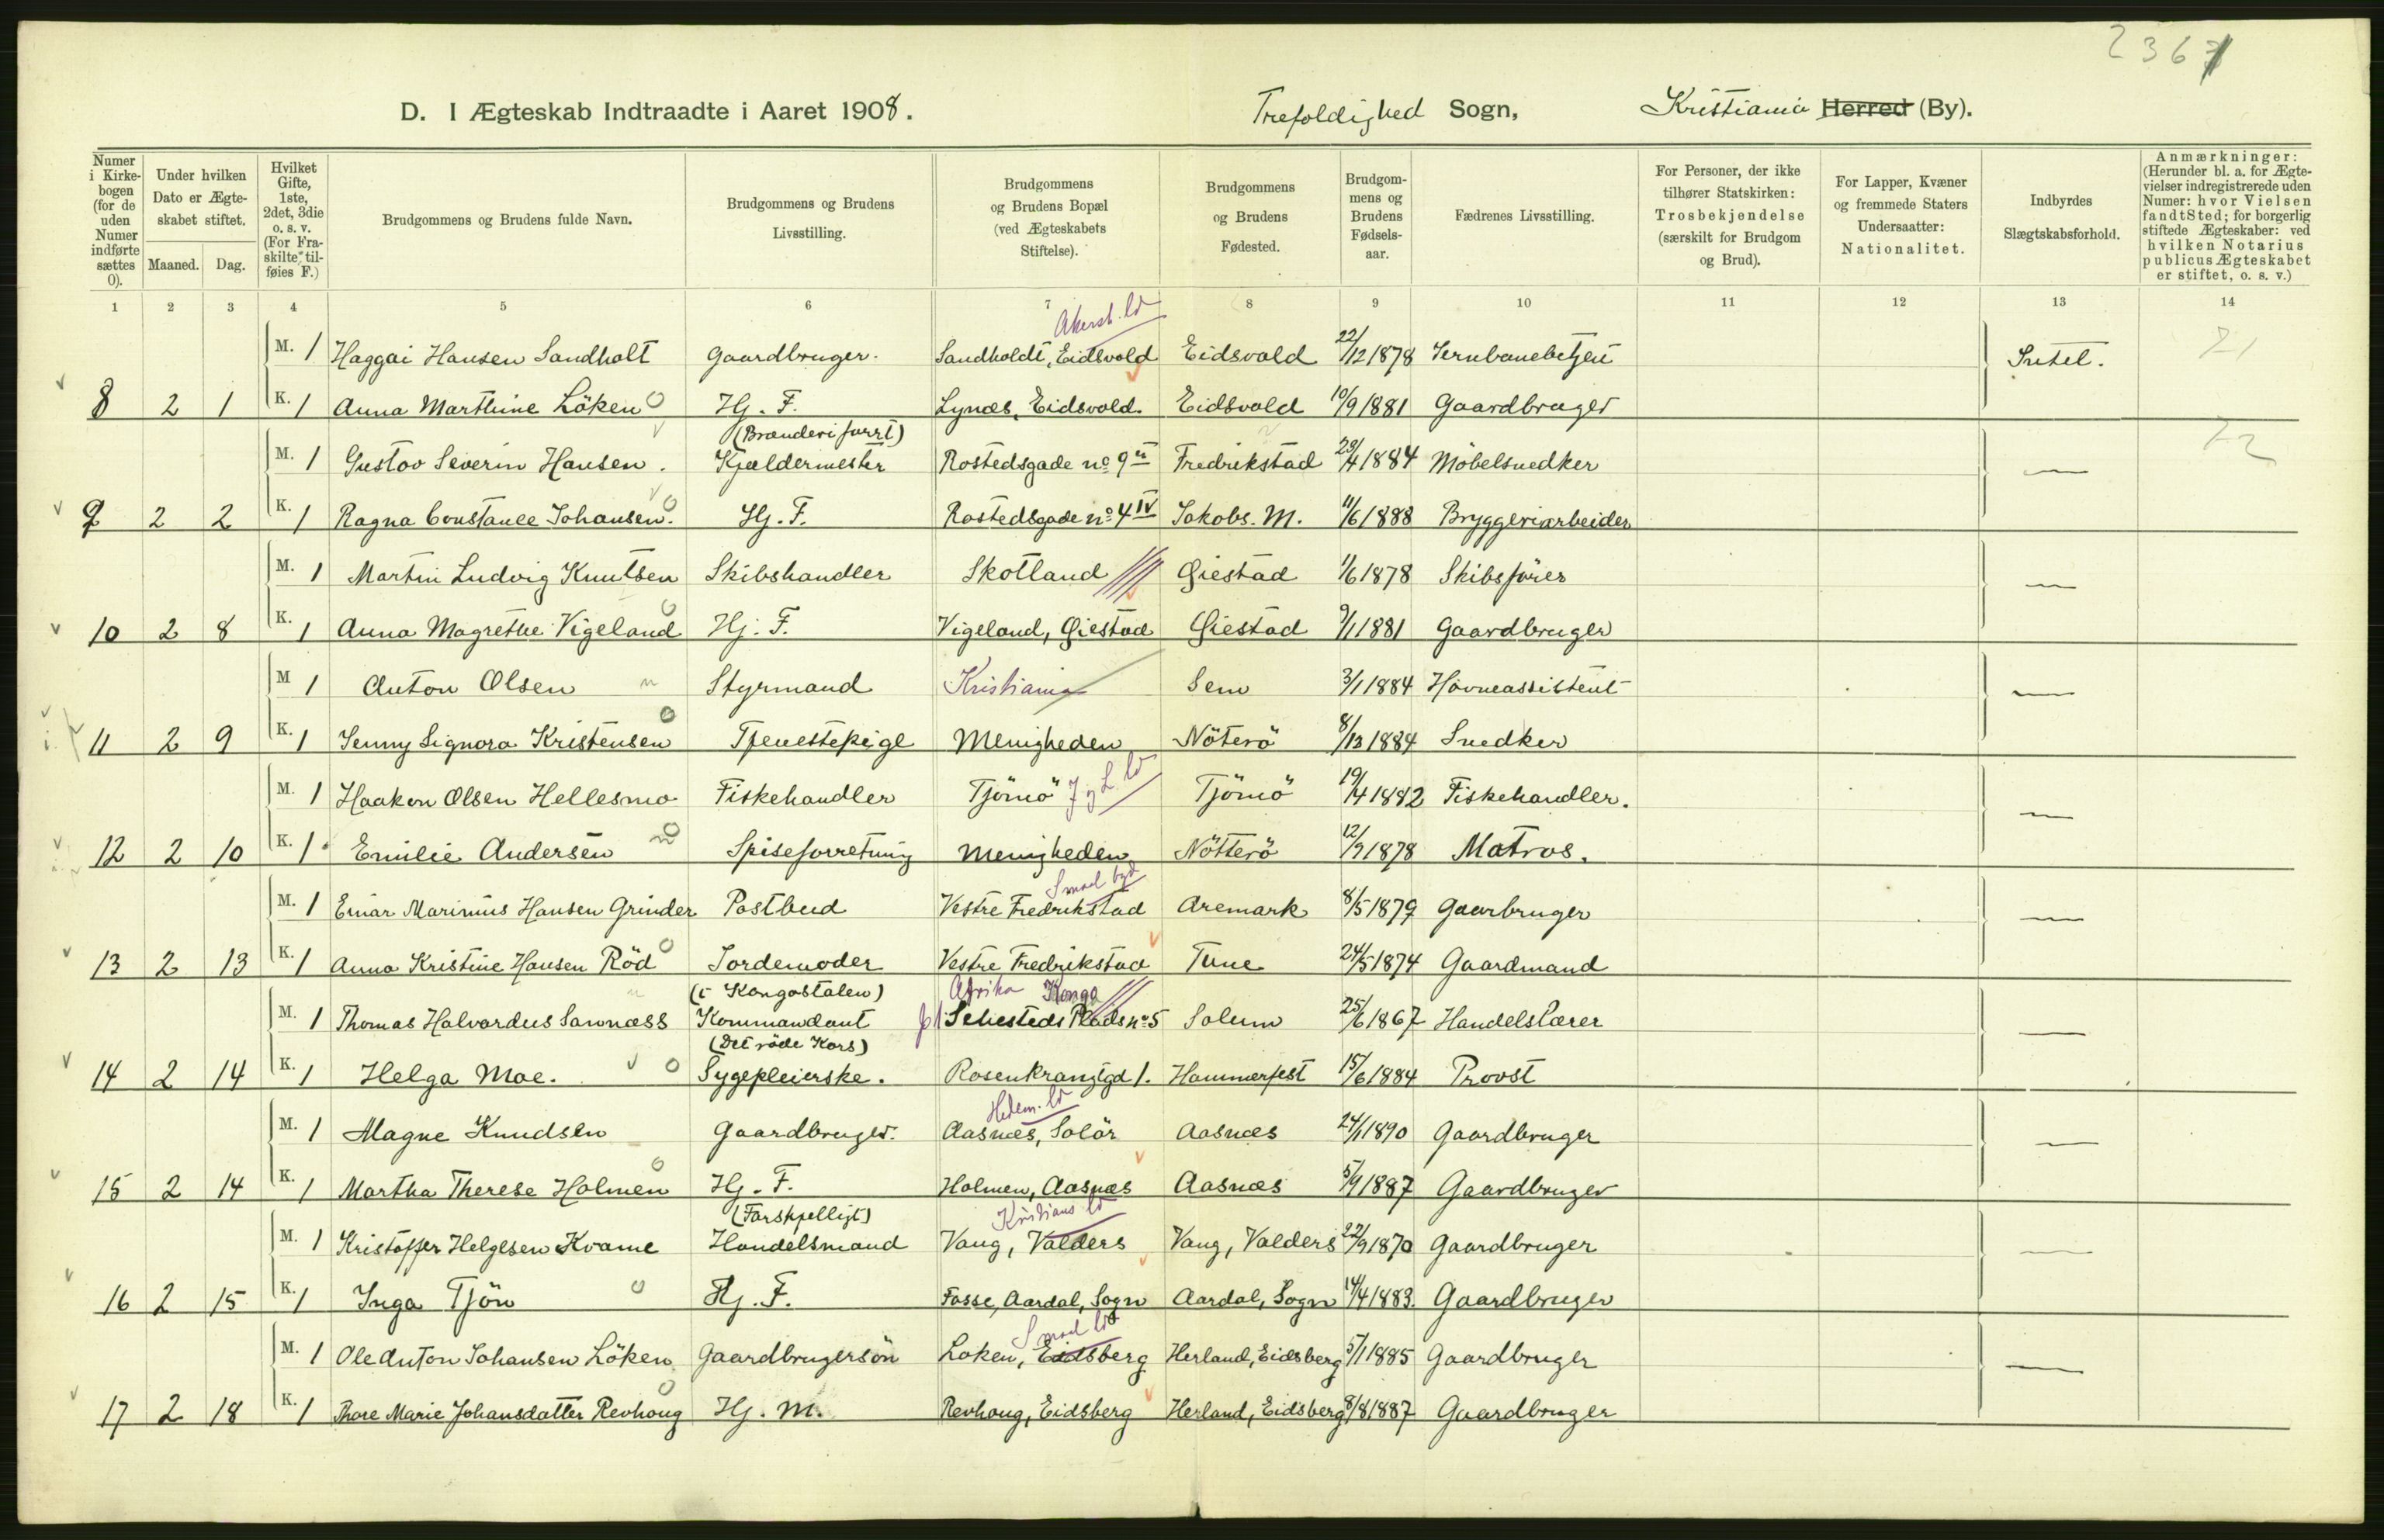 2367
D. I Ægteskab Indtraadte i Aaret 1908. Trefoldighed Sogn, Kristiania Herred (By).
Numer i Kirkebogen (for de uden Numer indførte sættes 0).
Under hvilken Dato er Ægteskabet stiftet.
Maaned. Dag.
Hvilket Gifte, 1ste, 2det, 3die o. s. v. (For Fraskilte tilføies F.)
Brudgommens og Brudens fulde Navn.
Brudgommens og Brudens Livsstilling.
Brudgommens og Brudens Bopæl (ved Ægteskabets Stiftelse).
Brudgommens og Brudens Fødested.
Brudgommens og Brudens Fødselsaar.
Fædrenes Livsstilling.
For Personer, der ikke tilhører Statskirken: Trosbekjendelse (særskilt for Brudgom og Brud).
For Lapper, Kvæner og fremmede Staters Undersaatter: Nationalitet.
Indbyrdes Slægtskabsforhold.
Anmærkninger: (Herunder bl. a. for Ægtevielser indregistrerede uden Numer: hvor Vielsen fandt Sted; for borgerlig stiftede Ægteskaber: ved hvilken Notarius publicus Ægteskabet er stiftet, o. s. v.)
1 2 3 4 5 6 7 8 9 10 11 12 13 14
Akersh. ld
M. 1 Haggai Hansen Sandholt Gaardbruger. Sandholdt, Eidsvold Eidsvold 22/12 1878 Jernbanebetjent Intet.
8 2 1 K. 1 Anna Marthine Löken Hj. F. Lynæs, Eidsvold. Eidsvold 10/9 1881 Gaardbruger
(Brænderiforrt)
M. 1 Gustav Severin Hansen. Kjældermester Rostedsgade no 9 II Fredrikstad 29/4 1884 Möbelsnedker —
9 2 2 K. 1 Ragna Constance Johansen. Hj. F. Rostedsgade no 4 IV Jakobs. M. 11/6 1888 Bryggeriarbeider
M. 1 Martin Ludvig Knutsen Skibshandler Skotland Øiestad 1/6 1878 Skibsförer —
10 2 8 K. 1 Anna Magrethe Vigeland Hj. F. Vigeland, Øiestad Øiestad 9/1 1881 Gaardbruger
M 1 Anton Olsen Styrmand Kristiania Sem 3/1 1884 Havneassistent —
11 2 9 K. 1 Jenny Signora Kristensen Tjenestepige Menigheden Nöterö 8/12 1884 Snedker
J. g L. ld
M. 1 Haakon Olsen Hellesmo Fiskehandler Tjömö Tjömö 19/4 1882 Fiskehandler. —
12 2 10 K. 1 Emilie Andersen Spiseforretning Menigheden Nötterö 12/9 1878 Matros.
Smaal byd
M. 1 Einar Marinius Hansen Grinder Postbud Vestre Fredrikstad Aremark 8/5 1879 Gaarbruger —
13 2 13 K. 1 Anna Kristine Hansen Röd Jordemoder Vestre Fredrikstad Tune 24/5 1874 Gaardmand
(i Kongostaten) Afrika Kongo
M. 1 Thomas Halvardus Sannæss Kommandant Sehesteds Plads no 5 Solum 25/6 1867 Handelslærer —
(Det röde Kors)
14 2 14 K. 1 Helga Moe. Sygepleierske. Rosenkrantzgd 1. Hammerfest 15/6 1884 Provst
Hedem. ld
M. 1 Magne Knudsen Gaardbruger. Aasnæs, Solör Aasnæs 24/1 1890 Gaardbruger —
15 2 14 K. 1 Martha Therese Holmen Hj. F. Holmen, Aasnæs Aasnæs 5/9 1887 Gaardbruger
(Forskjelligt) Kristians ld
M. 1 Kristoffer Helgesen Kvame Handelsmand Vang, Valders Vang, Valders 22/9 1870 Gaardbruger —
16 2 15 K. 1 Inga Tjön Hj. F. Fosse, Aardal, Sogn Aardal, Sogn 14/4 1883. Gaardbruger
Smaal ld
M. 1 Ole Anton Johansen Löken Gaardbrugersön Loken, Eidsberg Herland, Eidsberg 5/1 1885 Gaardbruger —
17 2 18 K. 1 Thore Marie Johansdatter Revhoug Hj. M. Revhoug, Eidsberg Herland, Eidsberg 8/8 1887 Gaardbruger